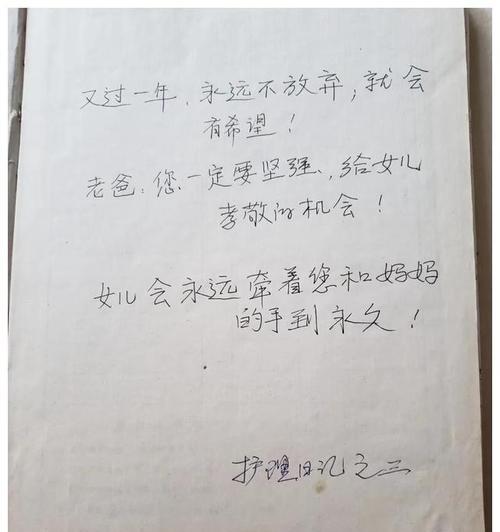 又过一年，永远不放弃，就会
有希望！
老爸：您一定要坚强，给女儿
孝敬的机会！
女儿会永远牵着您和妈妈
的手到永久！
护理日记之三